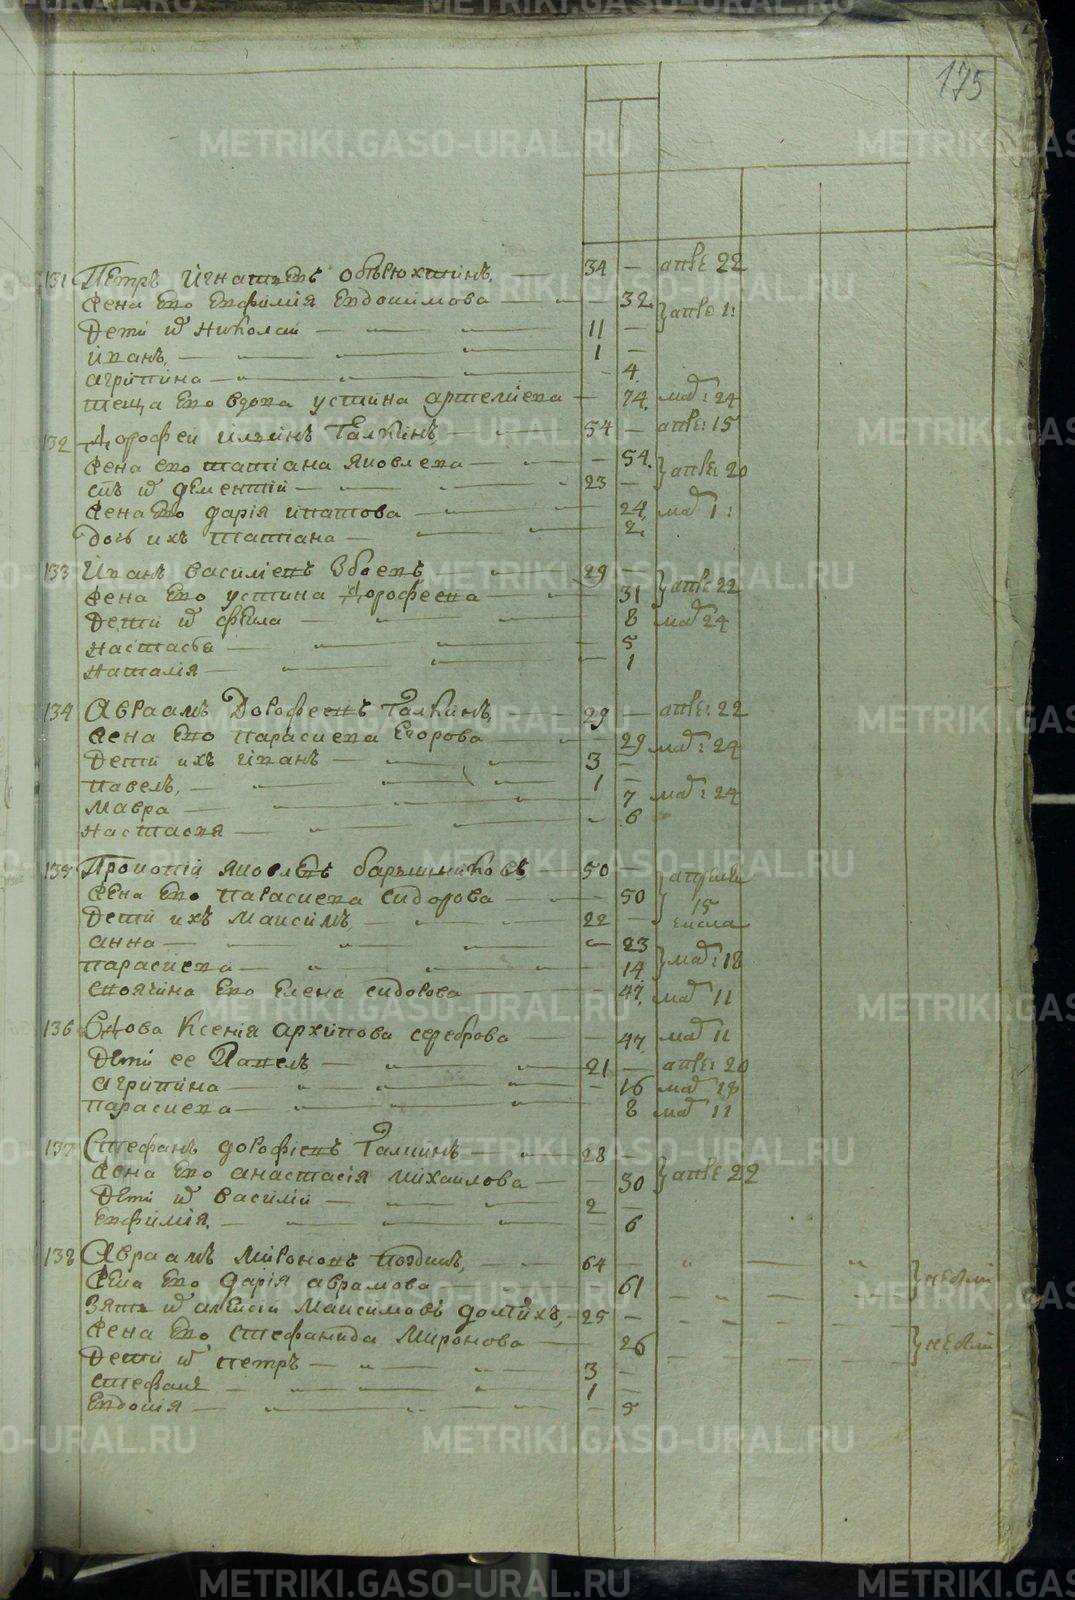 175
131 Петръ Игнатьевъ 34 — апре 22
жена ево Евфимия Евдокимова — 32 апре 1:
Дети их Николай — 11 —
Иванъ — 1 —
агрипина — 4
теща ево вдова устина артемиева — 74 маія: 24
132 Дорофей ильинъ Галкинъ — 54 — апре: 15
жена ево татиана яковлева — 54 апре: 20
сынъ их дементий — 23 —
жена ево дария ипатова — 24 маія 1:
дочь ихъ татиана — 2
133 Иванъ василиевъ Збоевъ — 29 —
жена ево устина Дорофеева — 31 апре 22
Дети их фекла — 8 маія 24
настасья — 5
наталия — 1
134 Авраамъ Дорофеевъ Галкинъ — 29 — апре: 22
жена ево параскева Егорова — 29 маія: 24
Дети ихъ иванъ — 3 —
павелъ — 1 —
мавра — 7 маія: 24
настасия — 6
135 яковлевъ барышниковъ — 50 — апреля
жена ево параскева сидорова — 50 15
Дети ихъ максимъ — 22 — числа
анна — 23
параскева — 14 маія: 18
своячина ево елена сидорова — 47 маія 11
136 вдова Ксения архипова сереброва — 47 маія 11
Дети ее Павелъ — 21 — апре: 20
агрипина — 16 маія 18
параскева — 8 маія 11
137 Стефанъ дорофиевъ Галкинъ — 28 —
жена ево анастасия михаилова — 30 апре 22
Дети их василий — 2 —
евфимия — 6
138 Авраамъ мироновъ — 64 —
жена ево дария аврамова — 61 не были
Зять их алексий максимовъ — 25 —
жена ево стефанида миронова — 26 не были
Дети их петръ — 3 —
стефанъ — 1 —
евдокия — 5
METRIKI.GASO-URAL.RU